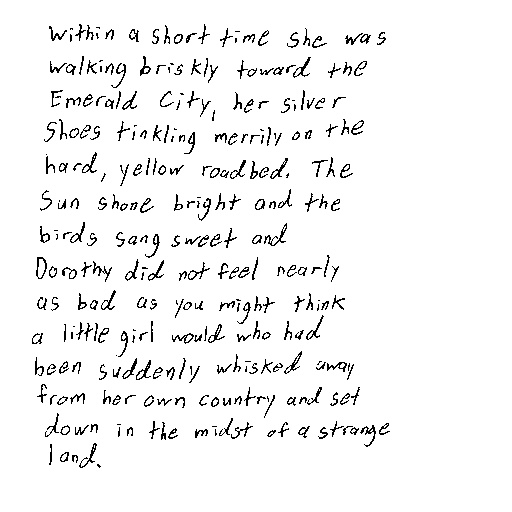 within a short time she was
walking briskly toward the
Emerald City, her silver
Shoes tinkling merrily on the
hard, yellow roadbed. The
Sun shone bright and the
birds sang sweet and
Dorothy did not feel nearly
as bad as you might think
a little girl would who had
been suddenly whisked away
from her own country and set
down in the midst of a strange
land.